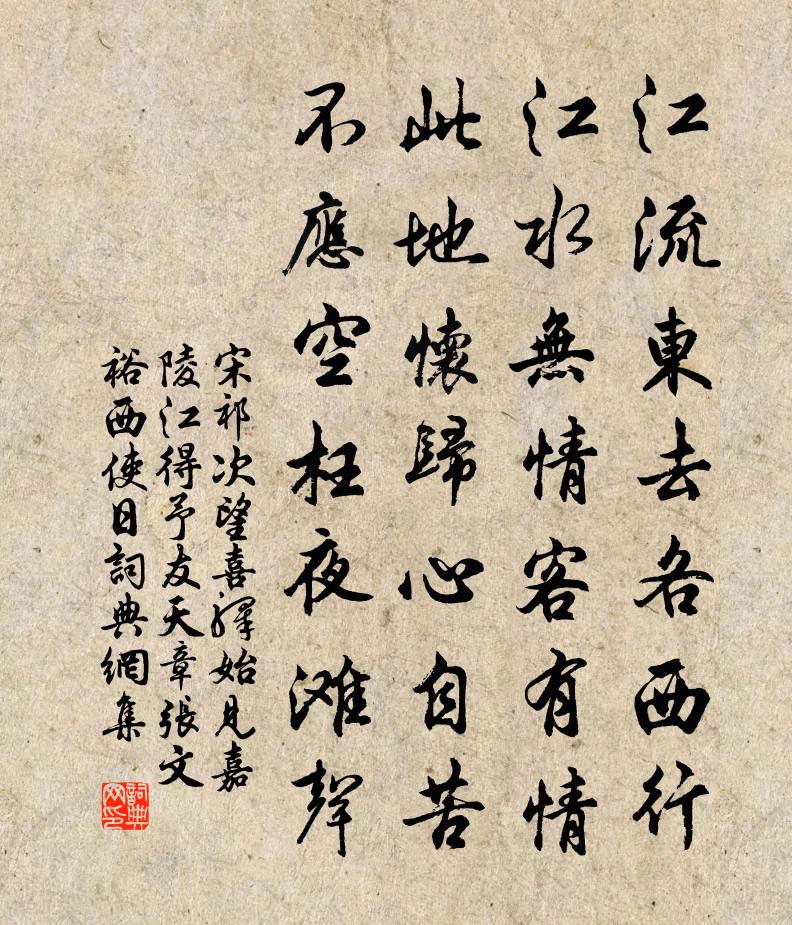 江流東去各西行
江水無情客有情
此地懷歸心自苦
不應空枉夜滩聲
宋祁次望喜驛始見嘉
陵江得予友天章張文
裕西使日詞典網集
詞典
网印